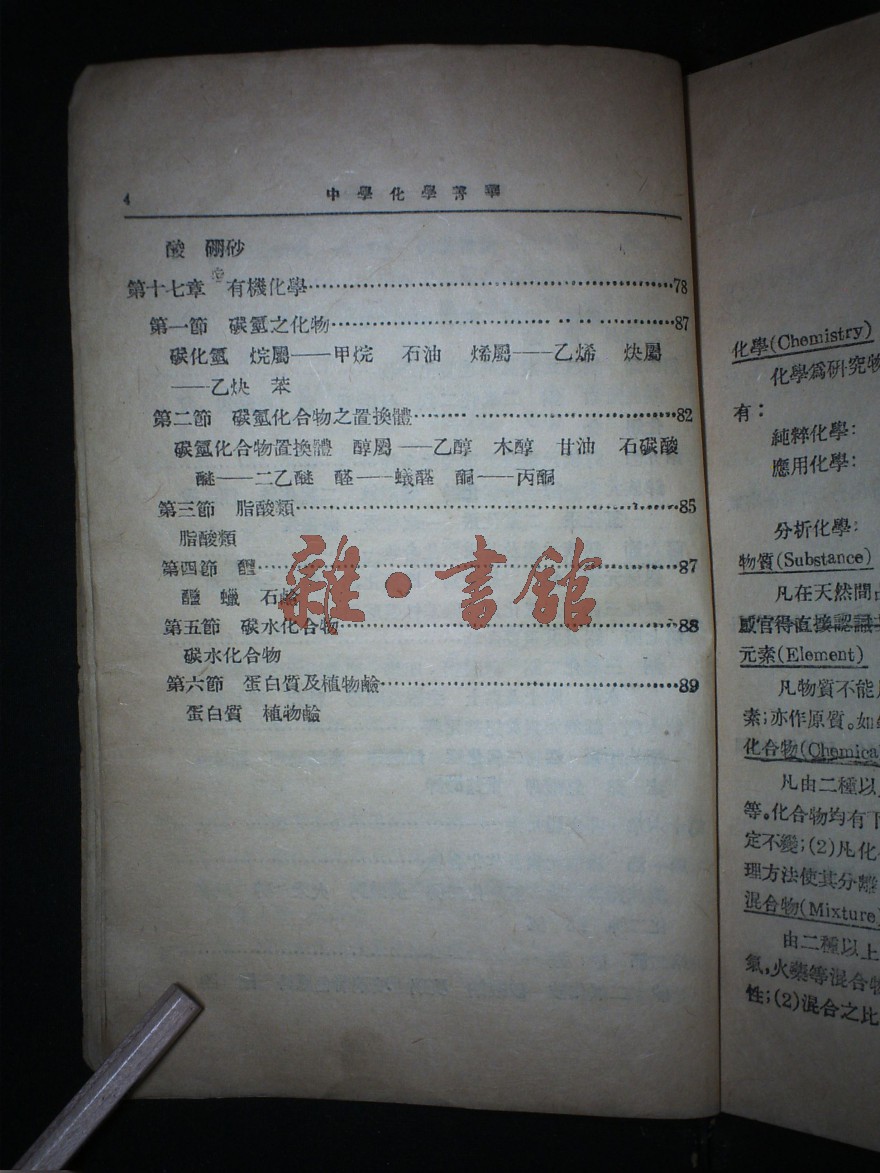 4 中學化學菁華
酸 硼砂
第十七章 有機化學 78
第一節 碳氫之化物 87
碳化氫 烷屬——甲烷 石油 烯屬——乙烯 炔屬
——乙炔 苯
第二節 碳氫化合物之置換體 82
碳氫化合物置換體 醇屬——乙醇 木醇 甘油 石碳酸
醚——二乙醚 醛——蟻醛 酮——丙酮
第三節 脂酸類 85
脂酸類
第四節 87
蠟 石鹼
第五節 碳水化合物 88
碳水化合物
第六節 蛋白質及植物鹼 89
蛋白質 植物鹼
雜·書館
化學(Chemistry)
化學爲研究物
有：
純粹化學：
應用化學：
分析化學：
物質(Substance)
凡在天然間
感官得直接認識
元素(Element)
凡物質不能
素；亦作原質。如
化合物(Chemica
凡由二種以
等。化合物均有下
定不變；(2)凡化
理方法使其分離
混合物(Mixture)
由二種以上
氣，火藥等混合物
性；(2)混合之比